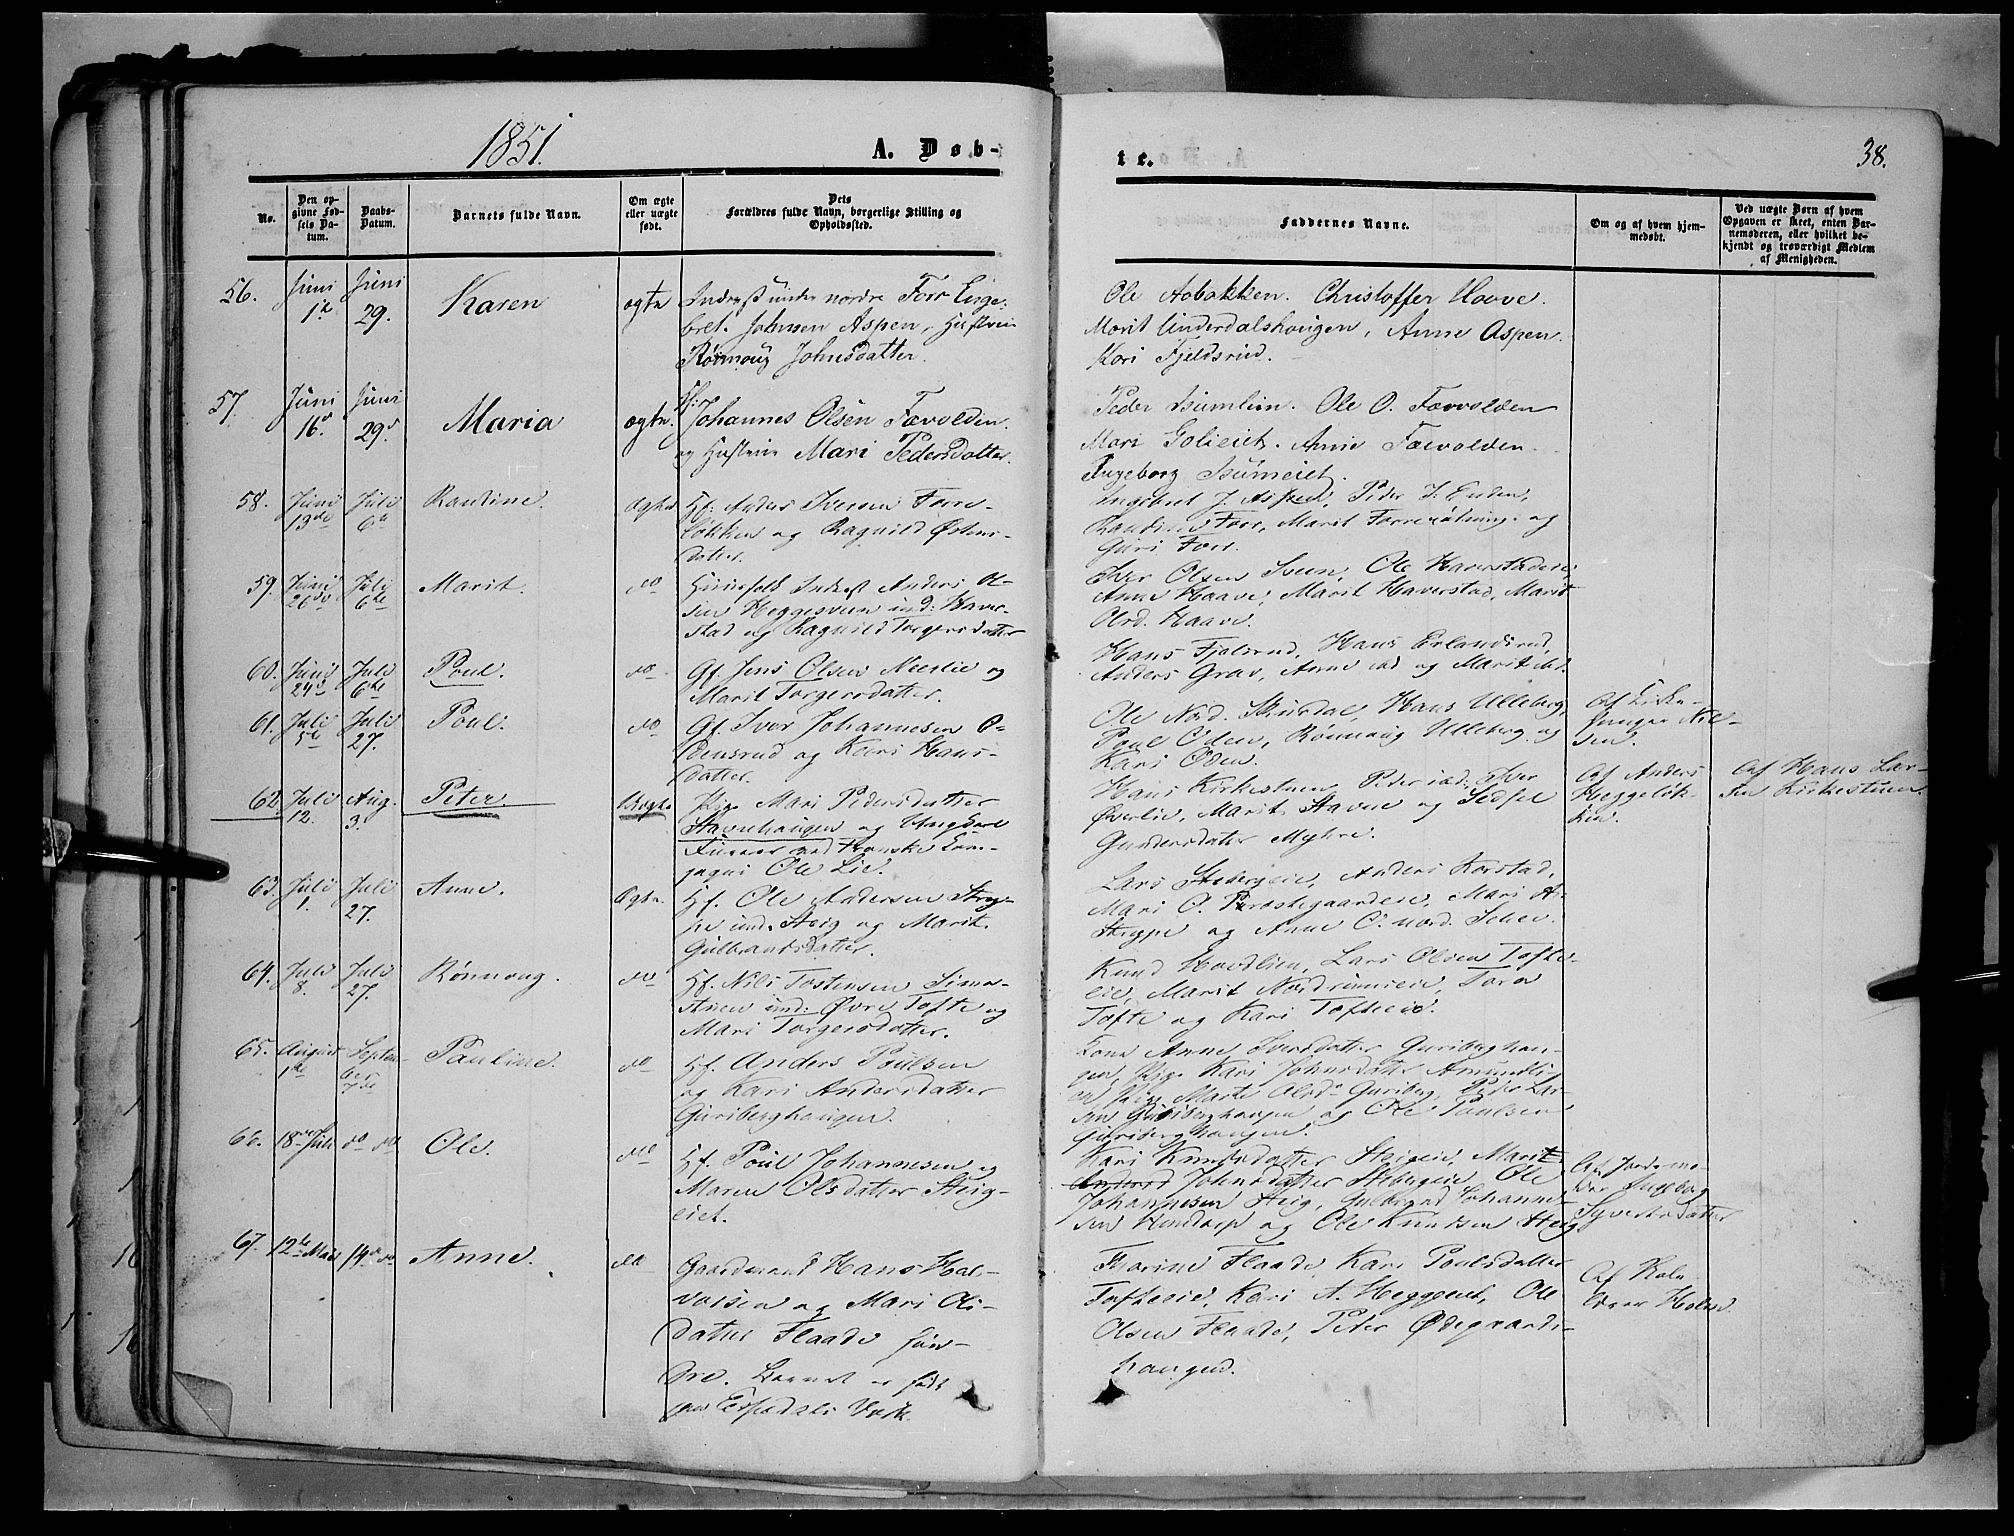 1851.
A. Døb-
te.
38.
No.
Den op-
givne Fød-
sels Da-
tum.
Daabs-
Datum.
Barnets fulde Navn.
Om ægte
eller uægte
født.
Dets
Forældres fulde Navn, borgerlige Stilling og
Opholdssted.
Faddernes Navne.
Om og af hvem hjem-
medøbt.
Ved uægte Børn af hvem
Opgaven er skeet, enten Bar-
nemoderen, eller hvilket be-
kjendt og troværdigt Medlem
af Menigheden.
56.
Juni
Juni
29.
Karen
ægte
Inderst under nordre Forr Enge-
bret Johnsen Aspen, Hustru
Rønnoug Johnsdatter.
Ole Aabakken. Christoffer Haave.
Marit Underdalshougen, Anne Aspen.
Kari Fjeldsrud.
57.
Juni
16.
Juni
29.
Maria
ægte.
Johannes Olsen Fævolden
og Hustrue Mari Pedersdatter.
Peder Isumlien. Ole O. Fævolden
Mari Golieiet. Anne Fævolden.
Ingeborg Isumeiet.
58.
Juni
13de
Juli
6te
Rantine.
Ægte
Hf. Anders Iversen Forre-
løkken og Ragnild Østens-
datter.
Ingebret J. Aspen, Peder
Forr, Marit og
Guri Forr.
59.
Juni
26de
Juli
6te
Marit.
do
Huusfolk Inderst Anders Ol-
sen Heggesveen und: Haver-
stad og Ragnild Torgersdatter
Iver Olsen Sveen, Ole Haverstadeie,
Anne Haave, Marit Haverstad, Marit
Olsd. Haave.
60.
Juni
24de
Juli
6te
Poul.
do
Gf. Jens Olsen Neeslie og
Marit Torgersdatter.
Hans Fjelsrud, Hans Erlandsrud,
Anders Grav, Anne ibd og Marit ibd.
61.
Juli
5te
Juli
27.
Poul.
do
Gf. Iver Johannesen O-
densrud og Kari Hans-
datter.
Ole Nord. Skurdal, Hans Ulleberg,
Poul Oden, Rønnoug Ulleberg og
Kari Oden.
Af Kirke-
sanger Niel-
sen.
62.
Juli
12.
Aug.
3.
Peter.
Uægte
Pige Mari Pedersdatter
Stavnehaugen og Ungkarl
Ole Lie.
Hans Kirkestuen, Peder ibd: Iver
Øverlie, Marit Stavne og Sidsel
Gundersdatter Myhre.
Af Anders
Heggeløk-
ken.
Af Hans Lar-
sen Kirkestuen.
63.
Juli
1.
Juli
27.
Anne.
Ægte.
Hf. Ole Andersen Stryp-
pe und. Steig og Marit
Gulbrandsdatter.
Lars Stebergeie, Anders Korstad,
Mari O. Præstegaardeie, Mari A.
Stryppe og Anne O. nord.
64.
Juli
8.
Juli
27.
Rønnoug.
do
Hf. Nils Tostensen Simo-
stuen und: Øvre Tofte og
Mari Torgersdatter.
Knud Hovdlien, Lars Olsen Tofte-
eie, Marit Tora
Tofte og Kari Tofteeie.
65.
August
1ste
Septem-
ber
7de
Pauline.
do
Hf. Anders Poulsen
og Kari Andersdatter
Guriberghaugen.
Kone Anne Iversdatter Guriberghau-
gen, Pige Kari Johnsdatter Amundli-
en, Pige Marte Olsd. Guriberg, Peder Lar-
sen Guriberghaugen og Ole Poulsen
Guriberghaugen.
66.
18de Juli
do do
Ole.
do
Hf. Poul Johannesen og
Maren Olsdatter Steig-
eiet.
Kari Knudsdatter Steigeie, Marit
Johnsdatter Stebergeie, Ole
Johannesen Steig, Gulbrand Johannes-
sen Hundorp og Ole Knudsen Steig
Af Jordemo-
der Ingeborg
Syvertsdatter
67.
12te Mai
14de do
Anne.
do
Gaardmand Hans Hal-
vorsen og Mari Ols-
datter Flaade søn-
dre. Barnet er født
paa Espedals Værk.
Thorine Flaade, Kari Poulsdatter
Tofteeie, Kari A. Heggeeiet, Ole
Olsen Flaade, Peter Ødegaards-
haugen.
Af